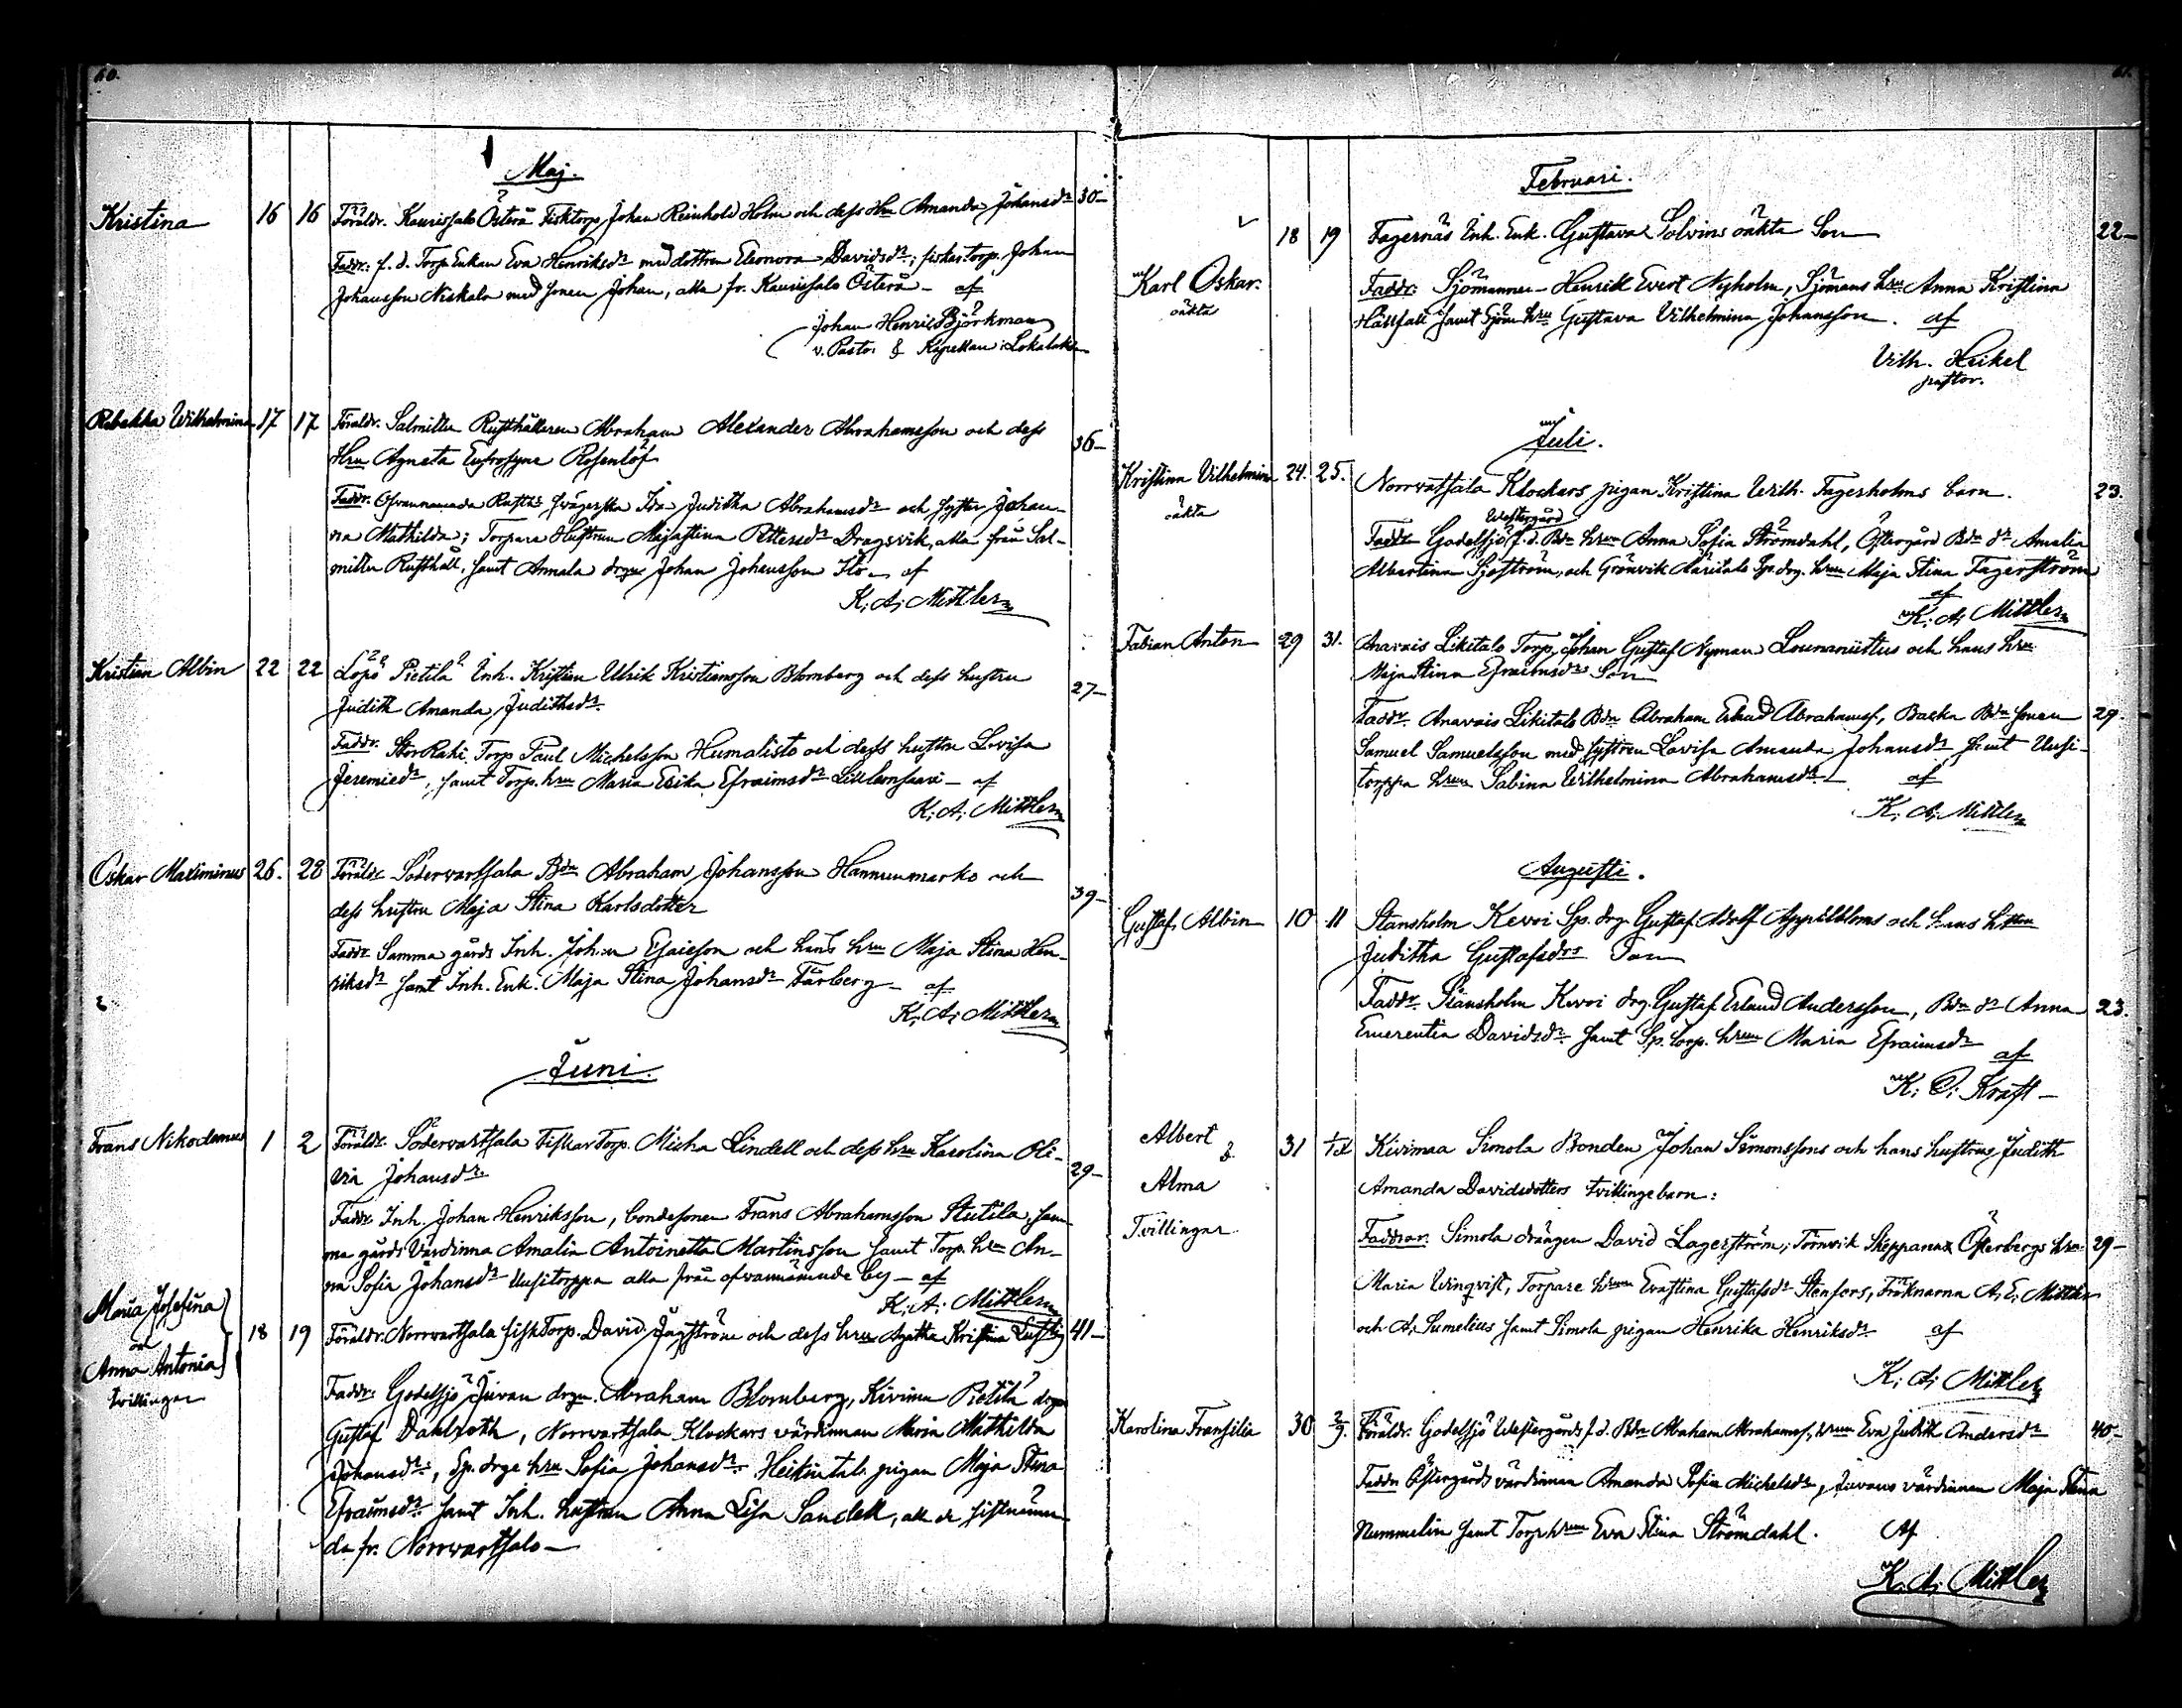 60.
Maj.
Kristina 16 16 Föräldr. Kaurissalo Österå Fisktorp. Johan Reinhold Holm och dess Hru Amanda Johansdr 30-
Faddr: f. d. Torp. Enkan Eva Henriksdr med dottren Eleonora Davidsdr; fiskartorp. Johan
Johansson Niskala med sonen Johan, alla fr. Kaurissalo Österå - af
Johan Henric Björkman
v. Pastor & Kapellan i Lokalaks
Rebekka Wilhelmina 17 17 Föräldr. Salmittu Rusthållaren Abraham Alexander Abrahamsson och dess
Hru Agneta Eufrosyne Rosenlöf 36-
Faddr. Ofvannämnda Rusth:s svägerska Ida Juditha Abrahamsdr och syster Johan-
na Mathilda; Torpare Hustrun Majastina Pettersdr Dragsvik, alla från Sal-
mittu Rusthåll, samt Annala drgn Johan Johansson Ilo - af
K. A. Mittler
Kristian Albin 22 22 Lepö Pietilä Inh. Kristian Ulrik Kristiansson Blomberg och dess hustru
Judith Amanda Judithsdr. 27-
Faddr. Stor Rahi Torp Paul Michelsson Humalisto och dess hustru Lovisa
Jeremiedr, samt Torp. hru Maria Erika Efraimsdr - af
K. A. Mittler
Oskar Maximinus 26. 28 Föräldr. Södervartsala Bdn Abraham Johansson Hannunmarko och
dess hustru Maja Stina Karlsdotter 39-
Faddr Samma gårds Inh. Johan Esaiesson och hans hru Maja Stina Hen-
riksdr samt Inh. Enk. Maja Stina Johansdr Färberg - af
K. A. Mittler
Juni.
Frans Nikodemus 1 2 Föräldr. Södervartsala Fiskar Torp. Micha Lindell och dess hru Karolina Oli-
via Johansdr. 29-
Faddr Inh. Johan Henriksson, bondesonen Frans Abrahamsson Stutila, sam-
ma gårds Värdinna Amalia Antoinetta Martinsson samt Torp. hru An-
na Sofia Johansdr Uusitorppa alla från ofvannämnde by - af
K. A. Mittler
Maria Josefina
och
Anna Antonia
tvillingar
18 19 Föräldr. Norrvartsala fisk Torp. David Jägström och dess hru Agatha Kristina 41-
Faddr: Godelsjö Juvan drgn. Abraham Blomberg, Kivimaa Pietilä drgn
Gustaf Dahlroth, Norrvartsala Klockars värdinnan Maria Mathilda
Johansdr, Sp. drge hru Sofia Johansdr Heikintalo pigan Maja Stina
Efraimsdr samt Inh. hustrun Anna Lisa Sandell, alla de sistnämn-
da fr. Norrvartsalo -
61.
Februari.
Karl Oskar.
oäkta
18 19 Fagernäs Inh. Enk. Gustava Solvins oäkta Son 22-
Faddr: Sjömannen Henrik Evert Nyholm, Sjömans hru Anna Kristina
Hällfall samt Sjöm hru Gustava Vilhelmina Johansson. af
Vilh. Heikel
pastor.
Juli.
Kristina Vilhelmina 24. 25. Norrvatsala Klockars pigan Kristina Wilh. Fagerholms barn. 23.
oäkta
Westergård
Faddr Godelsjö f. d. Bdn hrun Anna Sofia Strömdahl, Östergård Bdn dr Amalia
Albertina Sjöström, och Grönvik Sp. drg. hrun Maja Stina Fagerström
af
K. A. Mittler
Fabian Anton 29 31. Anavais Likitalo Torp. Johan Gustaf Nyman Lounaniittus och hans hru
Majastina Efraimsdrs Son
Faddr. Anavais Likitalo Bdn Abraham Erland Abrahamsf., Backa Bdn sonen 29.
Samuel Samuelsson med systren Lovisa Amanda Johansdr samt Uusi-
torppa hrun Sabina Wilhelmina Abrahamsdr - af
K. A. Mittler
Augusti.
Gustaf Albin 10 11 Stansholm Kevoi Sp. drg. Gustaf Adolf Appelbloms och hans hustru
Juditha Gustafsdrs Son
Faddr. Stansholm Kevoi drg. Gustaf Erland Andersson, Bdn dr Anna 23.
Emerentia Davidsdr samt Sp. torp. hrun Maria Efraimsdr
af
K. O. Kraft -
Albert
&
Alma
Tvillingar
31 1/IX Kivimaa Simola Bonden Johan Simonssons och hans hustrus Judith
Amanda Davidsdotters tvillingebarn:
Faddrar. Simola drängen David Lagerström, Törnvik Skepparen Österbergs hru 29-
Maria Winqvist, Torpare hrun Evastina Gustafsdr Stenfors, Fröknarna A. E. Mittler
och A. Sumelius samt Simola pigan Henrika Henriksdr af
K. A. Mittler
Karolina Fransilia 30 2/9. Föräldr. Godelsjö Westergårds f. d. Bdn Abraham Abrahamsf, hrun Eva Judith Andersdr 40-
Faddr Östergårds värdinnan Amanda Sofia Michelsdr, Juvans värdinnan Maja Stina
Nummelin samt Torp hrun Eva Stina Strömdahl. Af
K. A. Mittler